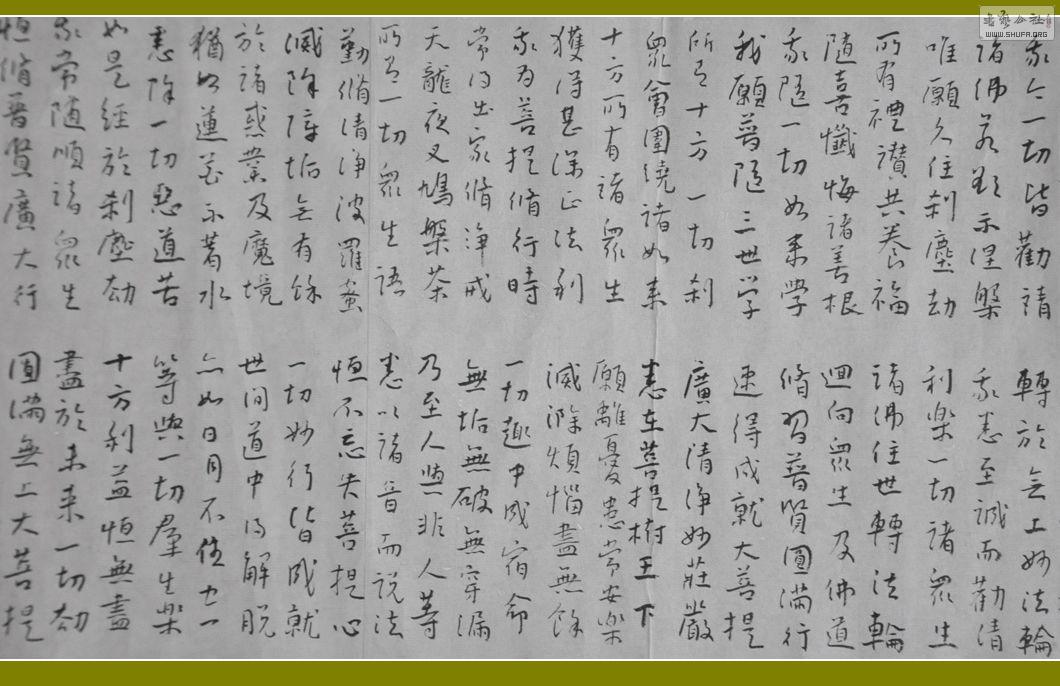 我今一切皆勸請 轉於无上妙法輪
諸佛若欲示涅槃 我悉至誠而勸請
唯願久住剎塵劫 利樂一切諸眾生
所有禮讃共養福 諸佛住世轉法輪
隨喜懺悔諸善根 迴向眾生及佛道
我隨一切如來學 脩習普賢圓滿行
我願普隨三世学 速得成就大菩提
所有十方一切剎 廣大清淨妙莊嚴
眾會圍繞諸如來 悉在菩提樹王下
十方所有諸眾生 願離憂患常安樂
獲得甚深正法利 滅除煩惱盡無餘
我為菩提脩行時 一切趣中成宿命
常得出家脩淨戒 無垢無破無穿漏
天龍夜叉鳩槃荼 乃至人與非人等
所有一切眾生語 悉以諸音而說法
勤脩清淨波羅蜜 恒不忘失菩提心
滅除障垢无有餘 一切妙行皆成就
於諸惑業及魔境 世間道中得解脫
猶如蓮花不著水 亦如日月不住空
悉除一切惡道苦 等與一切羣生樂
如是經於剎塵劫 十方利益恒無盡
我常隨順諸眾生 盡於未來一切劫
恒脩普賢廣大行 圓滿無上大菩提
書法公社
WWW.SHUFA.ORG